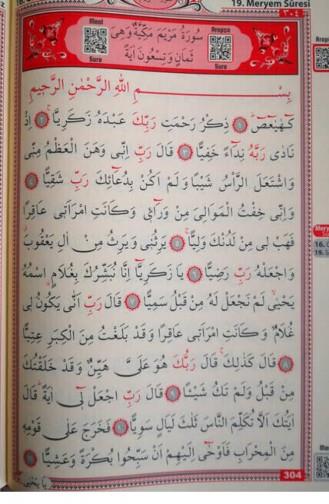 19. Meryem Sûresi
٣٠٤
Meal
Arapça
سُورَةُ مَرْيَمَ مَكِّيَّةٌ وَهِيَ
ثَمَانٍ وَتِسْعُونَ اٰيَةً
Sure
Sure
بِسْمِ اللّٰهِ الرَّحْمٰنِ الرَّحِيمِ
كٓهٰيٰعٓصٓ ﴿١﴾ ذِكْرُ رَحْمَتِ رَبِّكَ عَبْدَهُ زَكَرِيَّا ﴿٢﴾ اِذْ
نَادٰى رَبَّهُ نِدَٓاءً خَفِيًّا ﴿٣﴾ قَالَ رَبِّ اِنّٖى وَهَنَ الْعَظْمُ مِنّٖى
وَاشْتَعَلَ الرَّأْسُ شَيْبًا وَلَمْ اَكُنْ بِدُعَٓائِكَ رَبِّ شَقِيًّا ﴿٤﴾
وَاِنّٖى خِفْتُ الْمَوَالِىَ مِنْ وَرَٓائٖى وَكَانَتِ امْرَاَتٖى عَاقِرًا
فَهَبْ لٖى مِنْ لَدُنْكَ وَلِيًّا ﴿٥﴾ يَرِثُنٖى وَيَرِثُ مِنْ اٰلِ يَعْقُوبَ
وَاجْعَلْهُ رَبِّ رَضِيًّا ﴿٦﴾ يَا زَكَرِيَّٓا اِنَّا نُبَشِّرُكَ بِغُلَامٍ اسْمُهُ
يَحْيٰى لَمْ نَجْعَلْ لَهُ مِنْ قَبْلُ سَمِيًّا ﴿٧﴾ قَالَ رَبِّ اَنّٰى يَكُونُ لٖى
غُلَامٌ وَكَانَتِ امْرَاَتٖى عَاقِرًا وَقَدْ بَلَغْتُ مِنَ الْكِبَرِ عِتِيًّا
﴿٨﴾ قَالَ كَذٰلِكَ قَالَ رَبُّكَ هُوَ عَلَىَّ هَيِّنٌ وَقَدْ خَلَقْتُكَ
مِنْ قَبْلُ وَلَمْ تَكُ شَيْـًٔا ﴿٩﴾ قَالَ رَبِّ اجْعَلْ لٖٓى اٰيَةً قَالَ
اٰيَتُكَ اَلَّا تُكَلِّمَ النَّاسَ ثَلٰثَ لَيَالٍ سَوِيًّا ﴿١٠﴾ فَخَرَجَ عَلٰى قَوْمِهٖ
مِنَ الْمِحْرَابِ فَاَوْحٰٓى اِلَيْهِمْ اَنْ سَبِّحُوا بُكْرَةً وَعَشِيًّا ﴿١١﴾
304
يَا يَحْيٰى